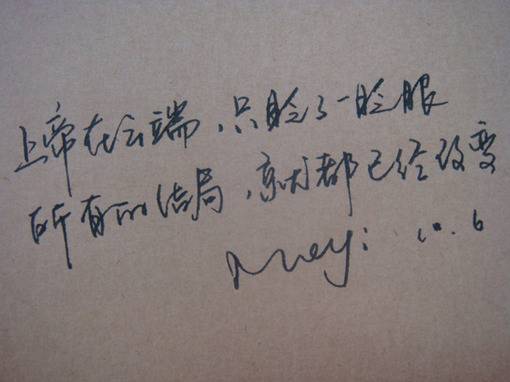 上帝在云端,只眨了一眨眼
所有的结局,就都已经改变
10.6